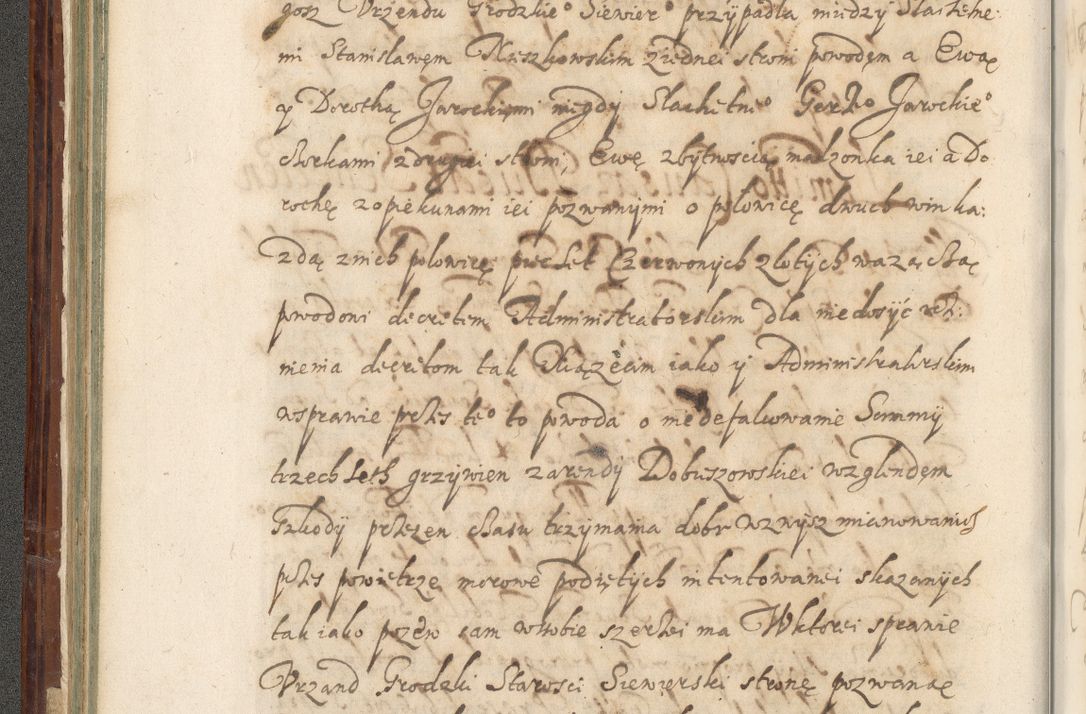 gosz Vrzendu Grodzkie° Siewier° przÿpadla miedzy Slachetne:
mi Stanisławęm Męszkowskim ziednei stroni powodęm a Ewaę
y Dorothą Jarockiemi niegdy Slachętne° Jarockie°
chorkami zdrugiei stroni, Ewę zbytnoscią malzonka iei a Do
rothę zopiekunami iei pozwanÿmi o polowicę dwuch win ka:
zdą znich polowicę piecset Czerwonÿch zlotÿch wazącÿhę
powodoni decretem Administratorskim dla niedosÿć vcz:
nienia decretom tak Xiązęcim iako y Administratorskim
wsprawie przes te° to powoda o niedefalkowanie Summÿ
trzech seth grzÿwien zarendÿ Dobuszowskiei wzglendęm
Szkodÿ przezen chasu trzÿmania dobr wznysz mianowanich
przes powietrze morowe podiętÿch intentowanei skazanÿch
tak iako pozew sam wsobie szerzei ma Wktorei sprawie
Vrzand Grodzki Starosci Siewierski stronę pozwanaę